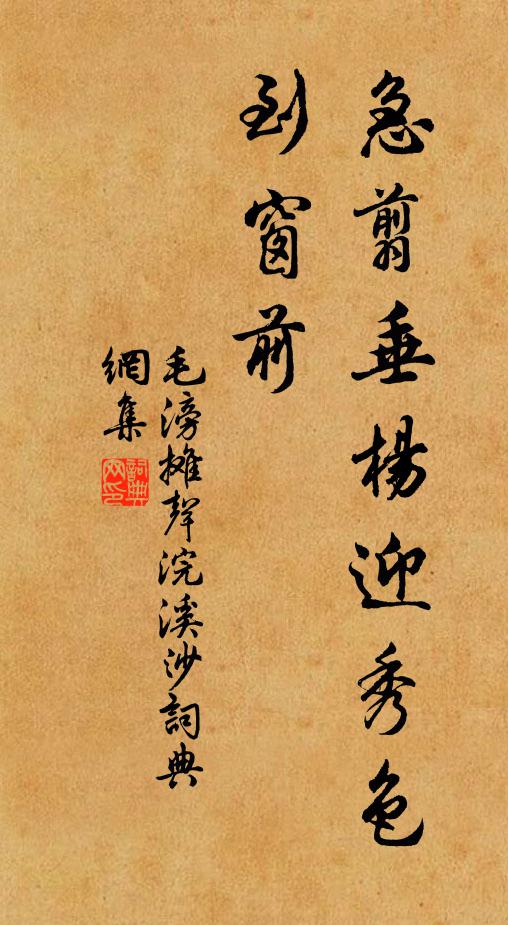 急翦垂楊迎秀色
到窗前
毛滂摊聲浣溪沙詞典
網集
詞典
网印